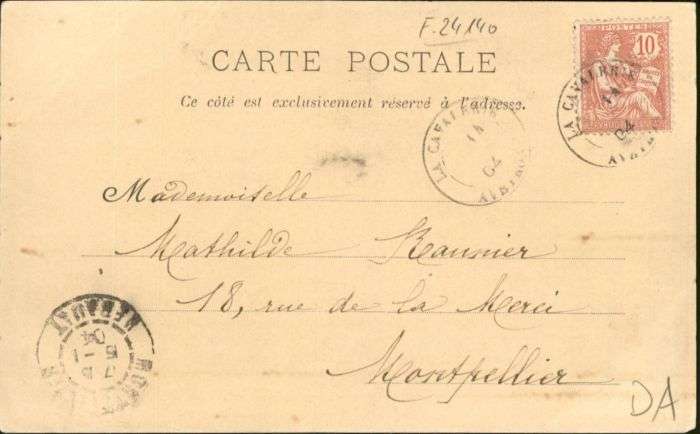 F.24140
POSTES
10
CARTE POSTALE
Ce côté est exclusivement réservé à l'adresse.
LA CAVALERIE
04
AVEYRON
LA CAVALERIE
04
AVEYRON
Mademoiselle
Mathilde Raunier
18, rue de la Merci
Montpellier
HERAULT
04
DA